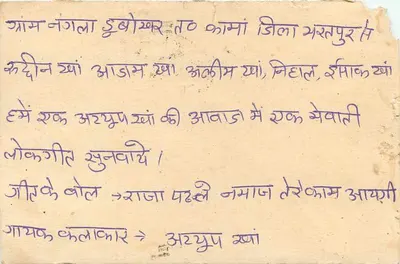 ग्रांम नंगला डूबोखर त० कामां ज़िला भरतपुर से
रुद्दीन खां आडाम खां अलीम खां, निहाल, ईसाक खां
हमें एक अय्यूप खां की आवाज में एक मेवाती
लोकगीत सुनवाये।
गीत के बोल → राजा पढले नमाज तेरे काम आयगी
गायक कलाकार → अय्यूप खां